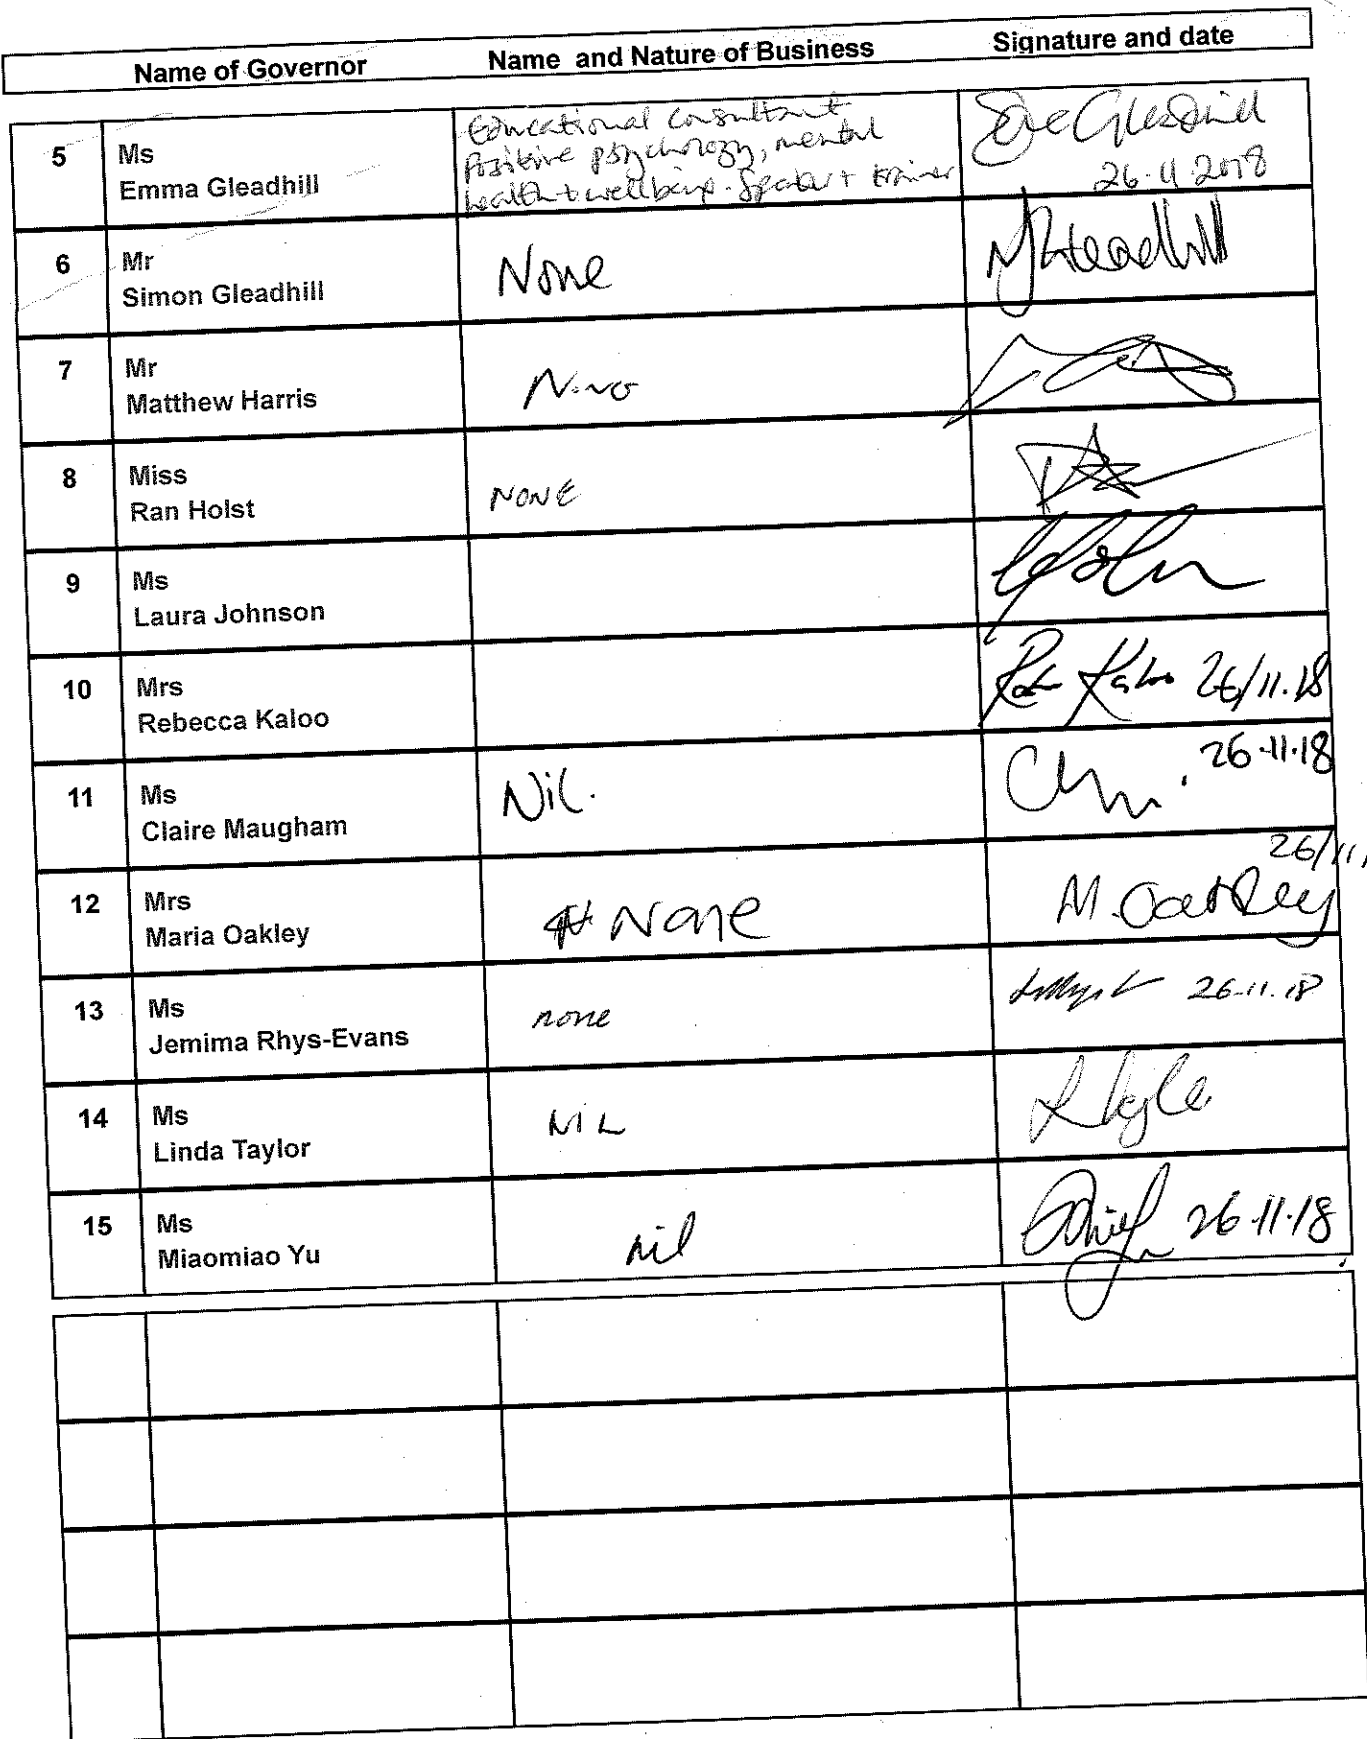 Name of Governor Name and Nature of Business Signature and date
5 Ms
Emma Gleadhill
Educational consultant
Positive psychology, mental
health + wellbeing. Speaker + trainer
26.11.2018
6 Mr
Simon Gleadhill
None
Gleadhill
7 Mr
Matthew Harris
8 Miss
Ran Holst
NONE
9 Ms
Laura Johnson
10 Mrs
Rebecca Kaloo
26/11.18
11 Ms
Claire Maugham
Nil.
26.11.18
12 Mrs
Maria Oakley
None
26/11/
M. Oakley
13 Ms
Jemima Rhys-Evans
none
26.11.18
14 Ms
Linda Taylor
NIL
15 Ms
Miaomiao Yu
nil
26.11.18